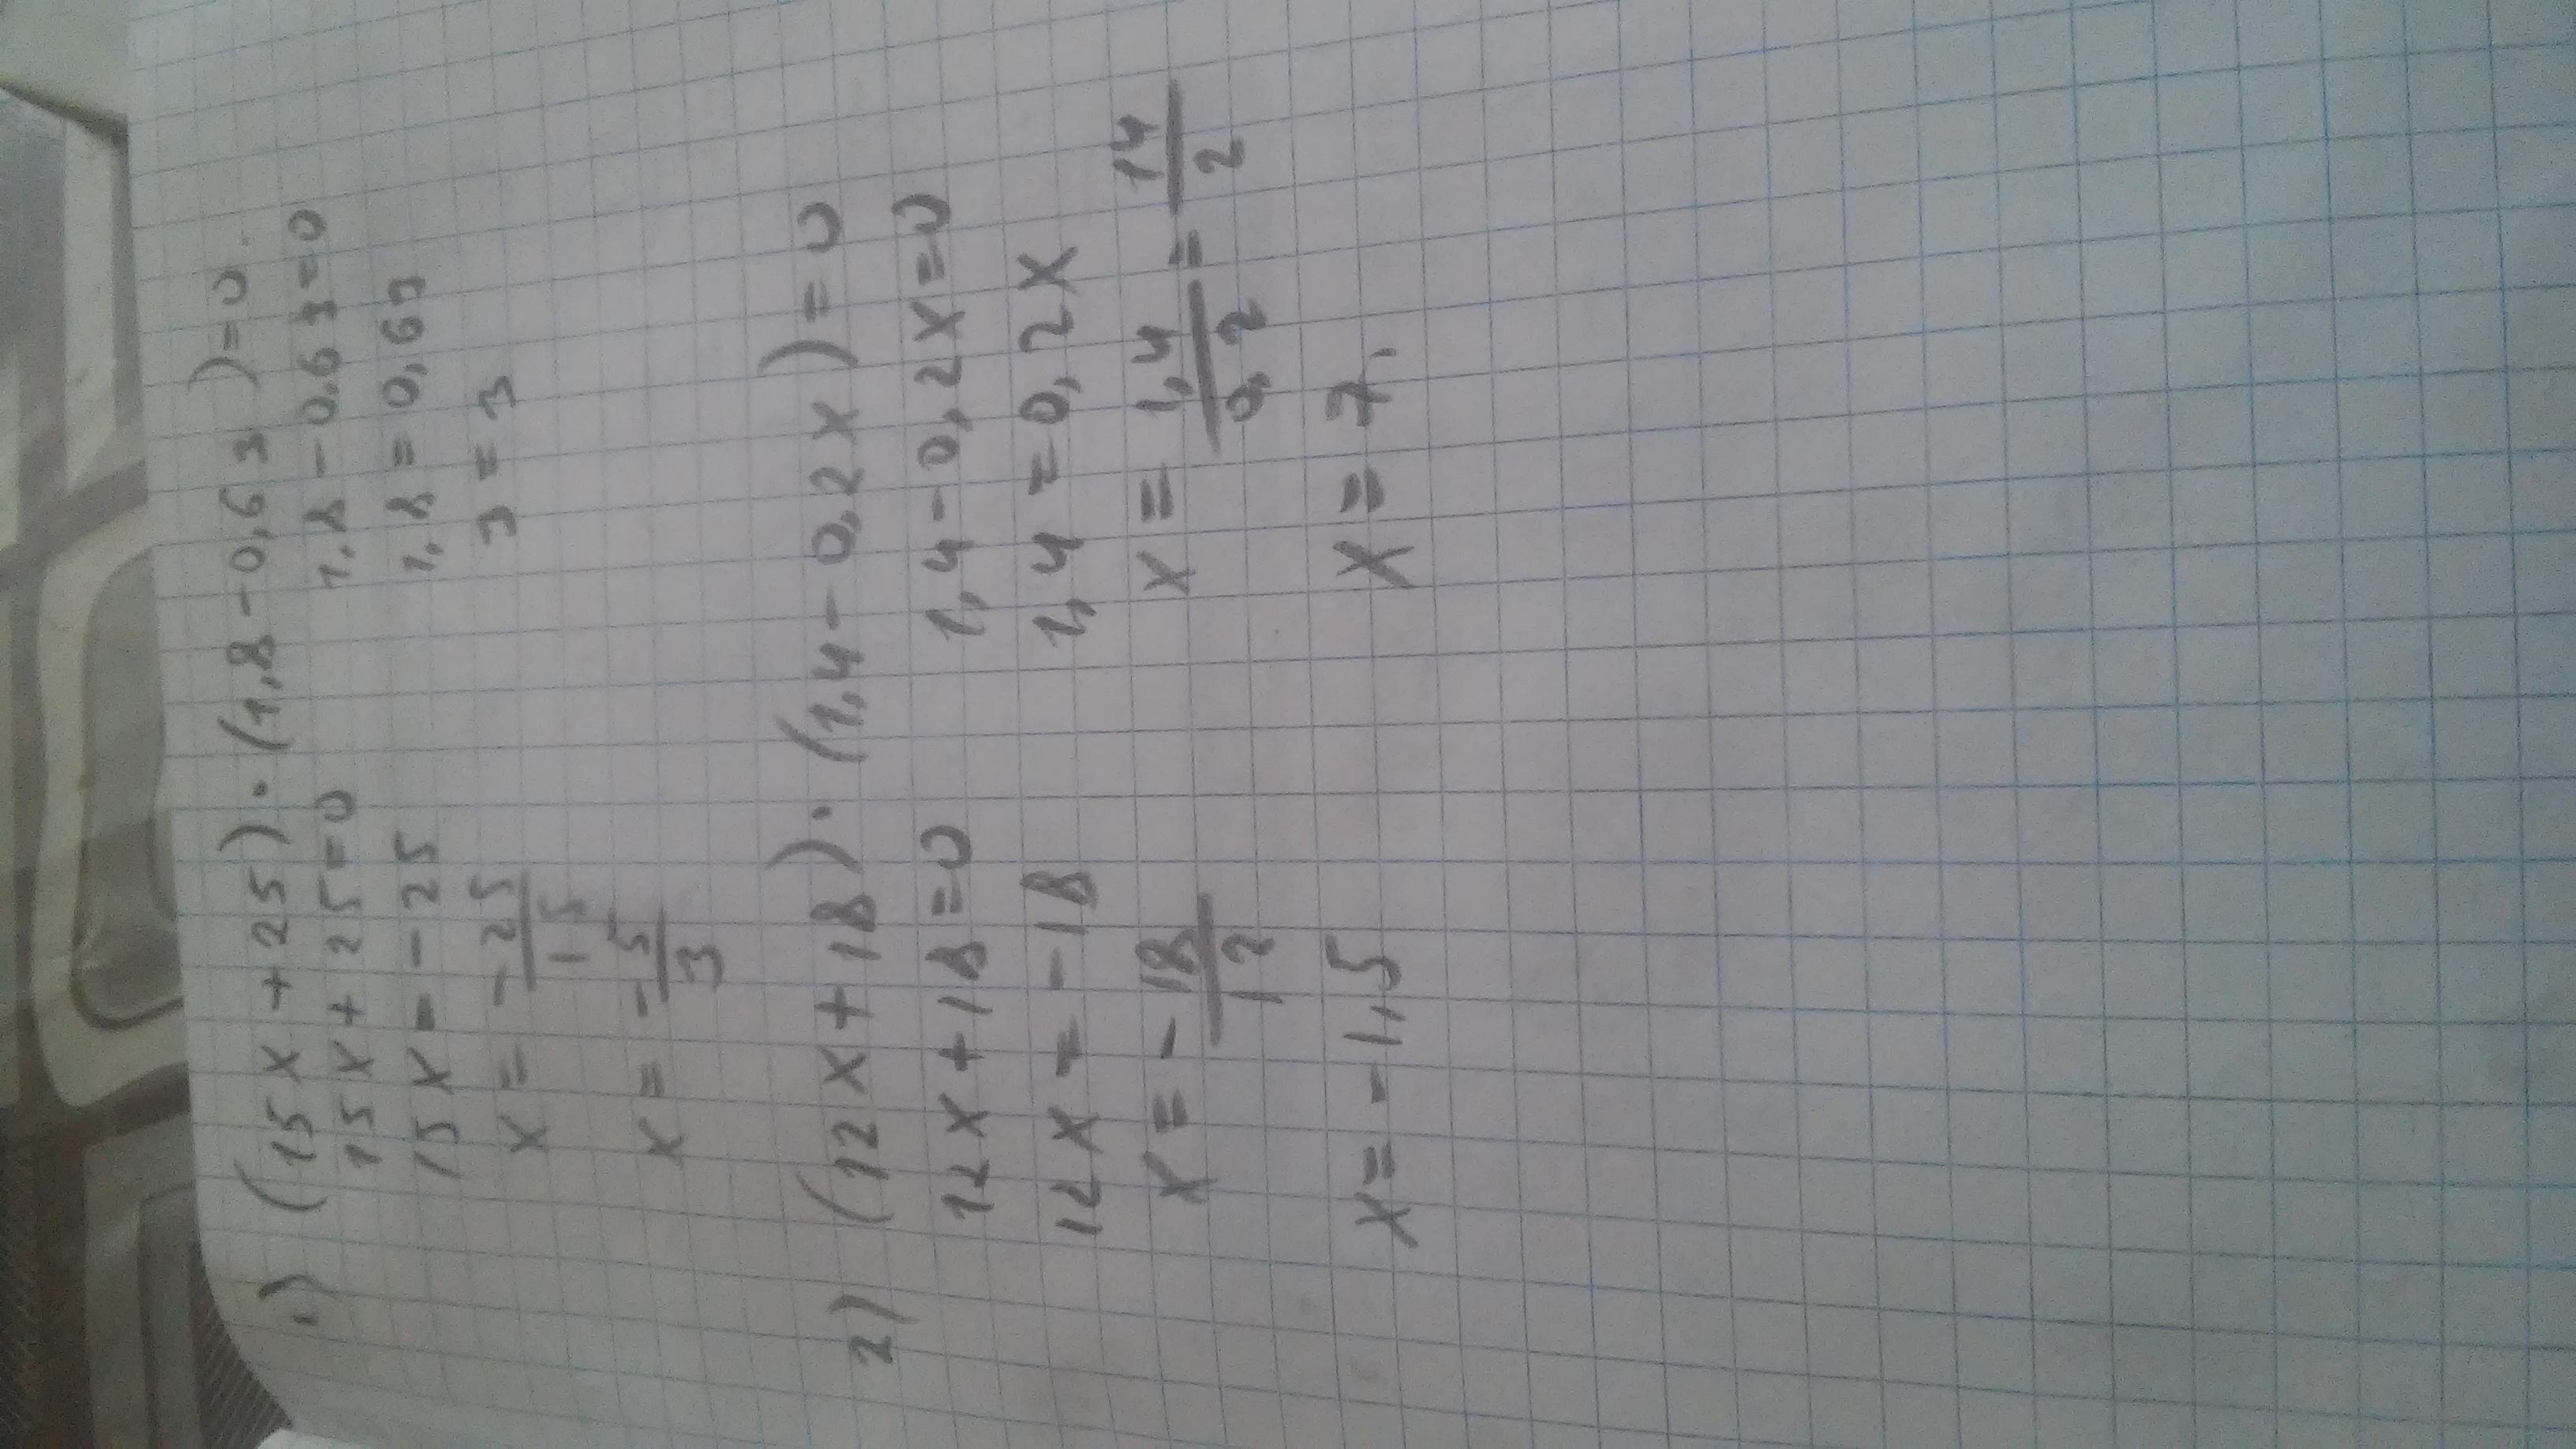 1) (15x+25)·(1,8-0,6з)=0.
15x+25=0 1,8-0,6з=0
15x=-25 1,8=0,6з
x=-25/15 з=3
x=-5/3
2) (12x+18)·(1,4-0,2x)=0
12x+18=0 1,4-0,2x=0
12x=-18 1,4=0,2x
x=-18/12 x=1,4/0,2=14/2
x=-1,5 x=7.